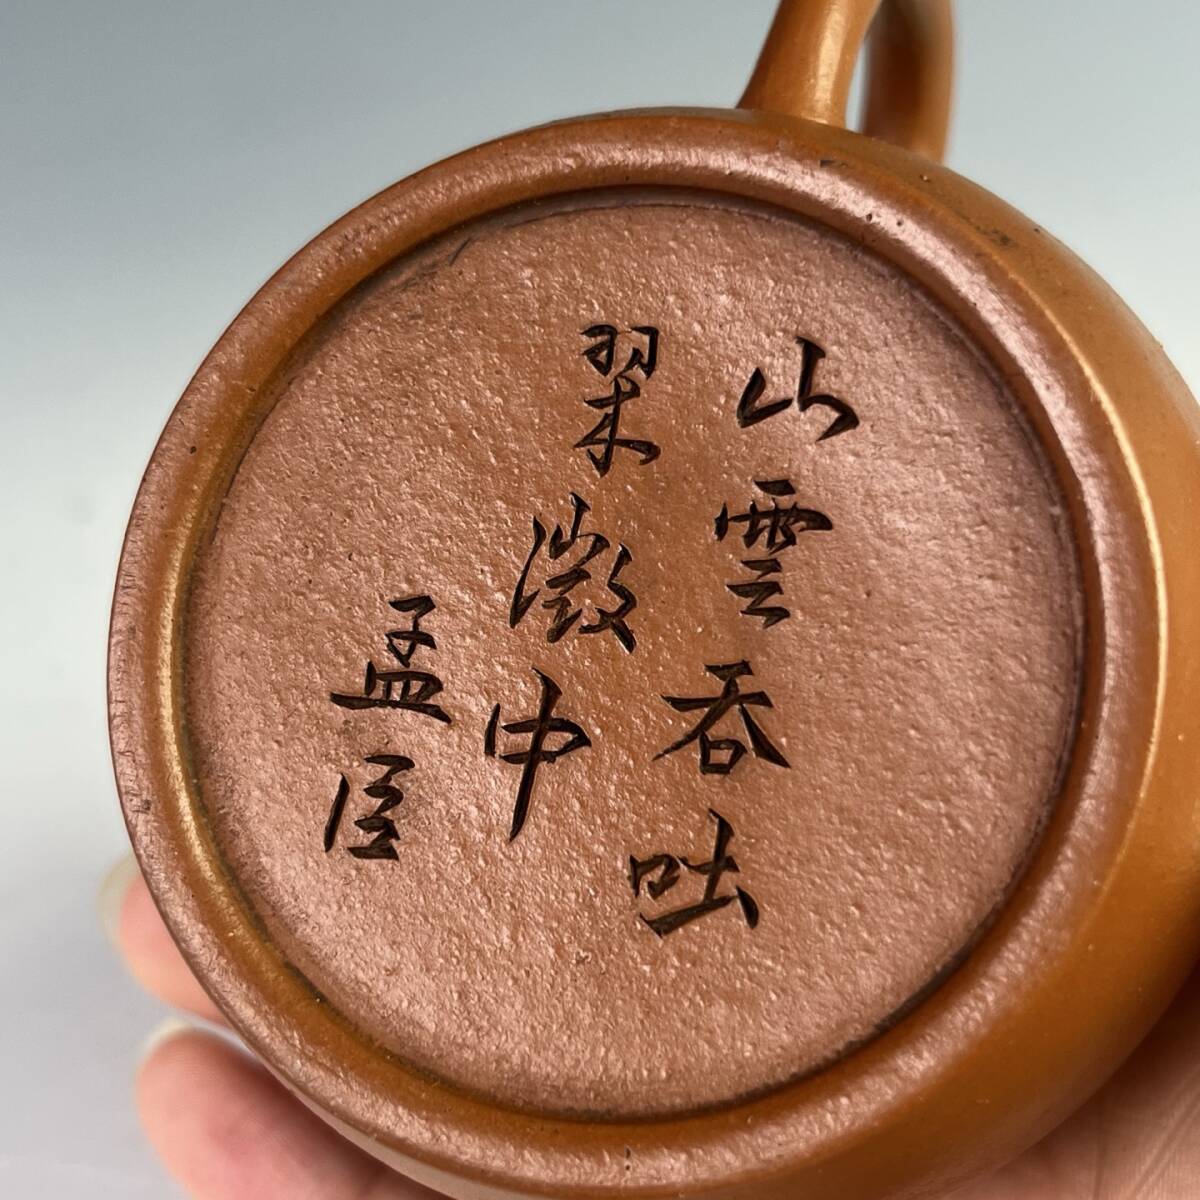 山雲吞吐
翠微中
孟臣